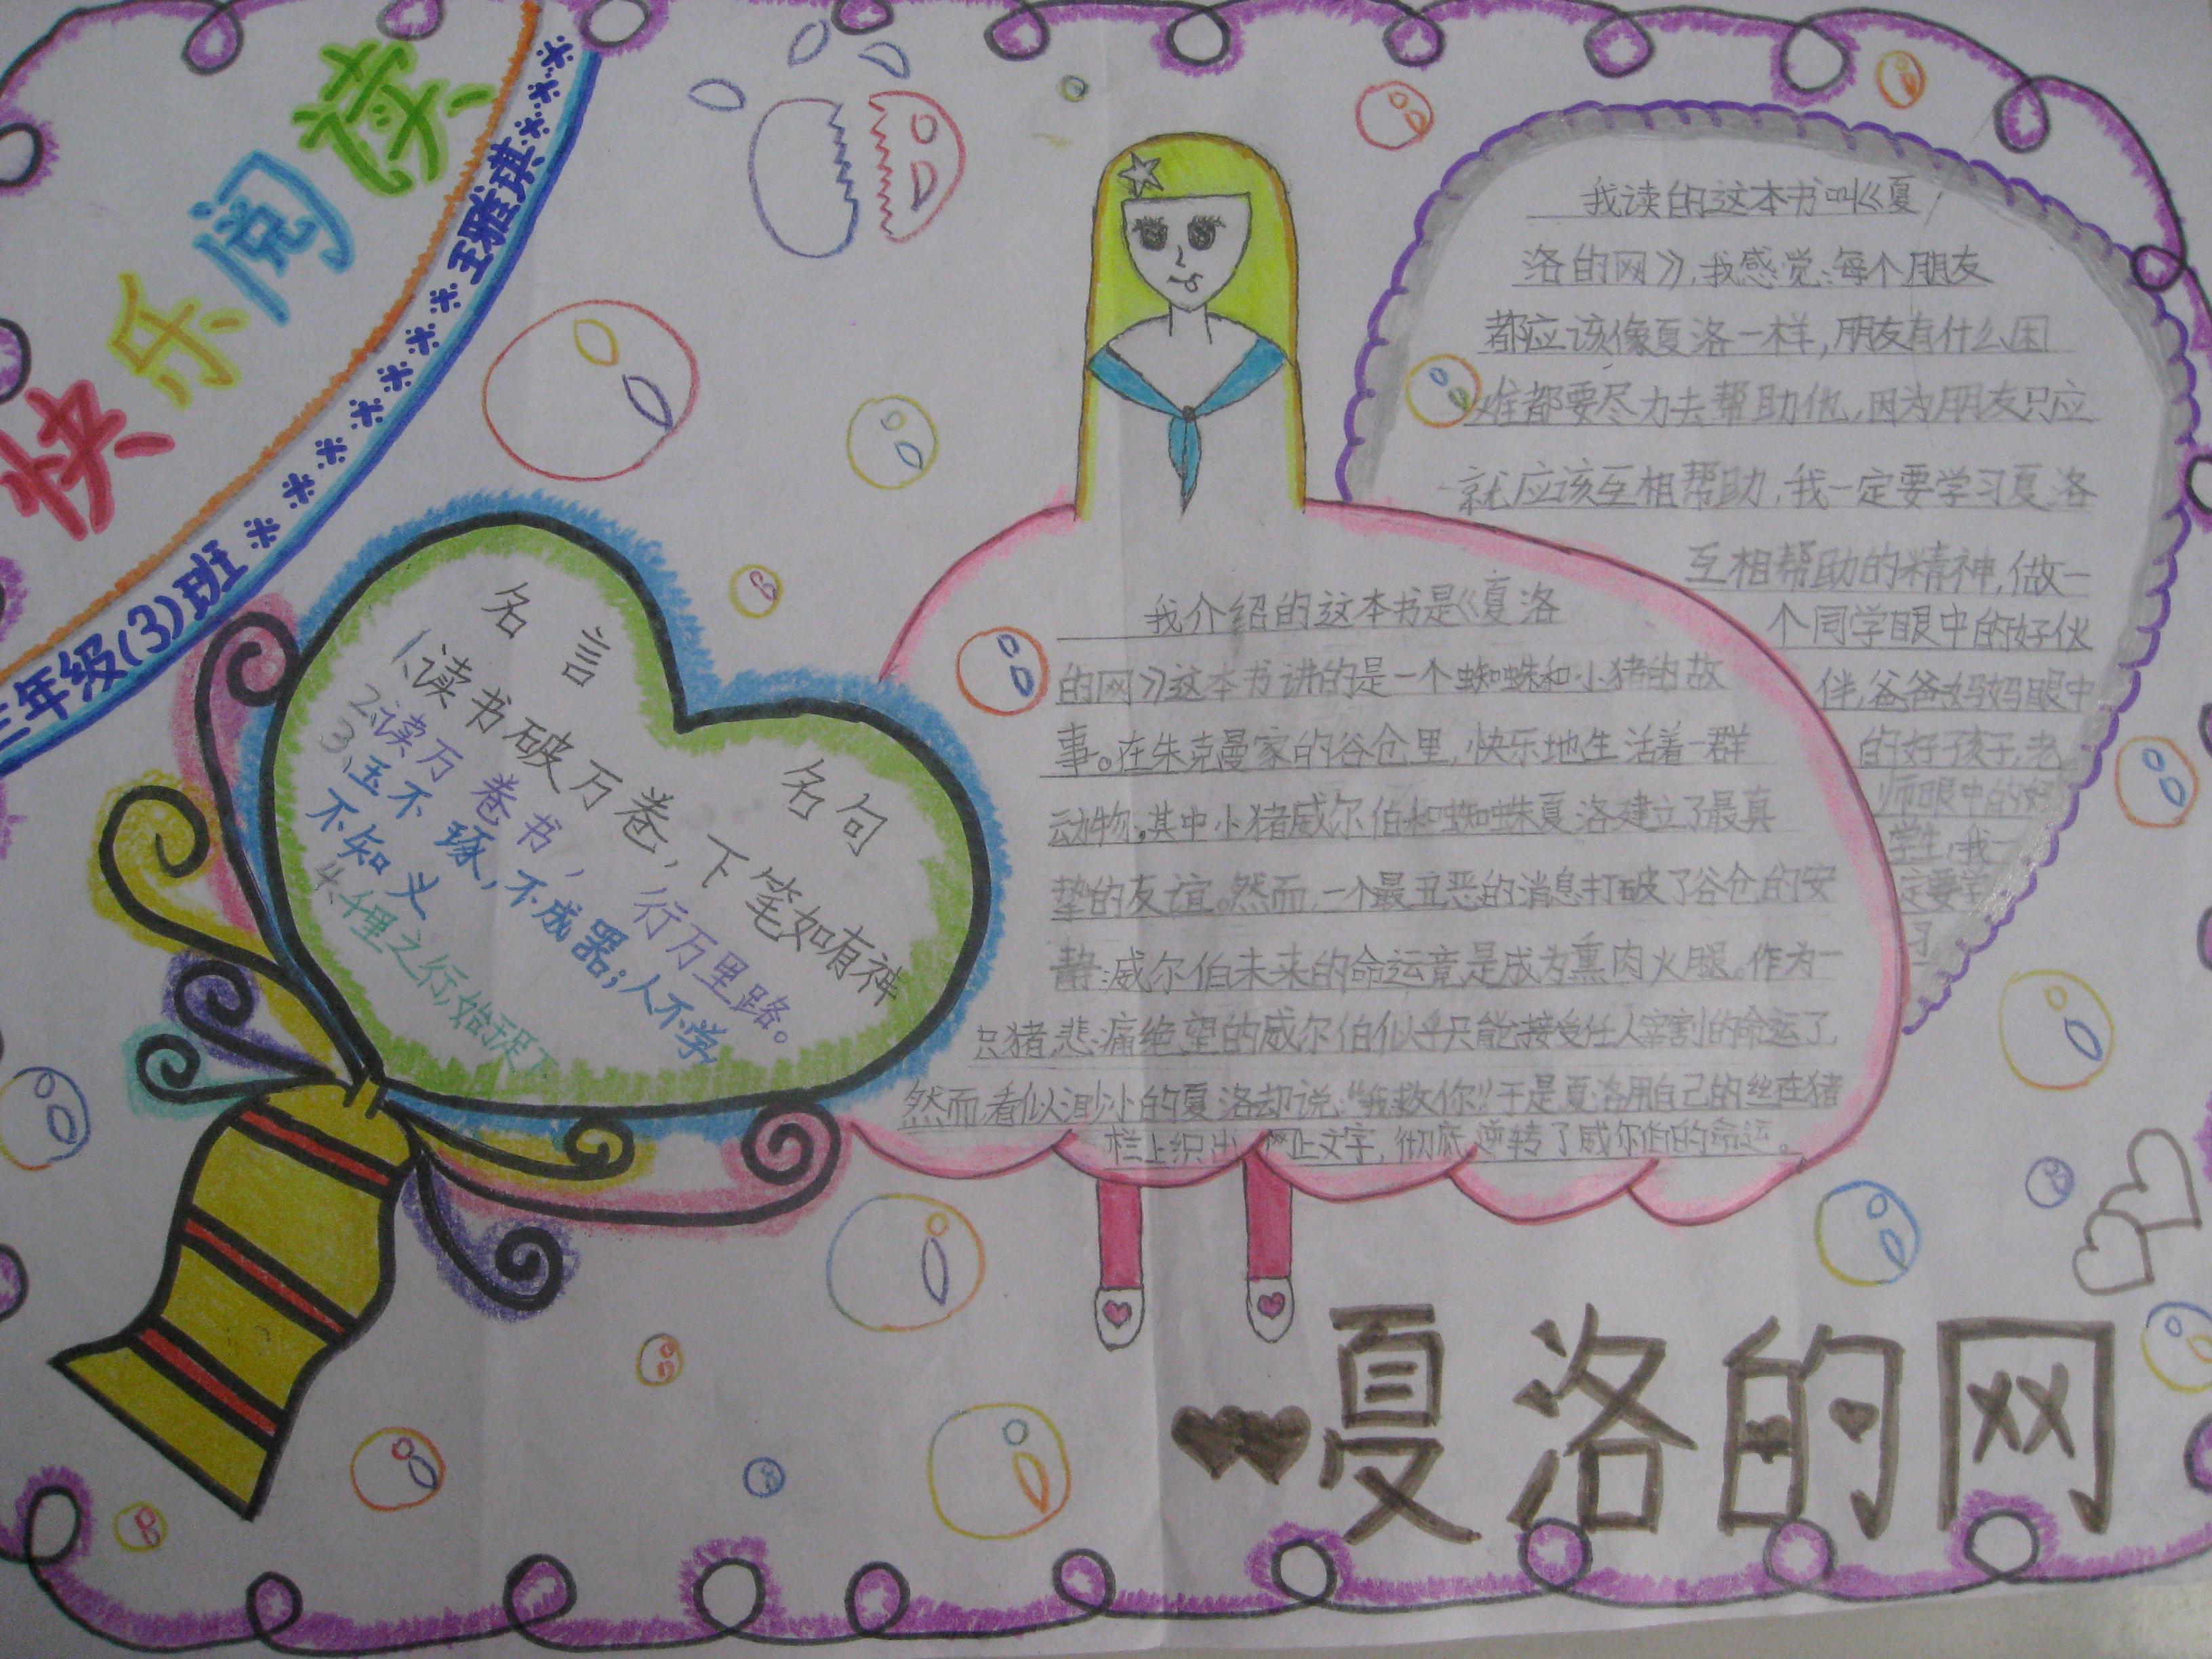 快乐阅读
三年级(3)班 ※※※※※※※※ 王雅琪※※※※
名言
名句
1、读书破万卷，下笔如有神
2、读万卷书，行万里路。
3、玉不琢，不成器；人不学
不知义
4、千里之行，始于足下
我读的这本书叫《夏
洛的网》，我感觉：每个朋友
都应该像夏洛一样，朋友有什么困
难都要尽力去帮助他，因为朋友只应
就应该互相帮助，我一定要学习夏洛
互相帮助的精神，做一
个同学眼中的好伙
伴，爸爸妈妈眼中
的好孩子，老
师眼中的好
学生，我一
定要学
习
我介绍的这本书是《夏洛
的网》这本书讲的是一个蜘蛛和小猪的故
事。在朱克曼家的谷仓里，快乐地生活着一群
动物。其中小猪威尔伯和蜘蛛夏洛建立了最真
挚的友谊。然而，一个最丑恶的消息打破了谷仓的安
静：威尔伯未来的命运竟是成为熏肉火腿。作为一
只猪，悲痛绝望的威尔伯似乎只能接受任人宰割的命运了，
然而，看似渺小的夏洛却说：“我救你”于是，夏洛用自己的丝在猪
栏上织出 网上文字，彻底逆转了威尔伯的命运。
夏洛的网